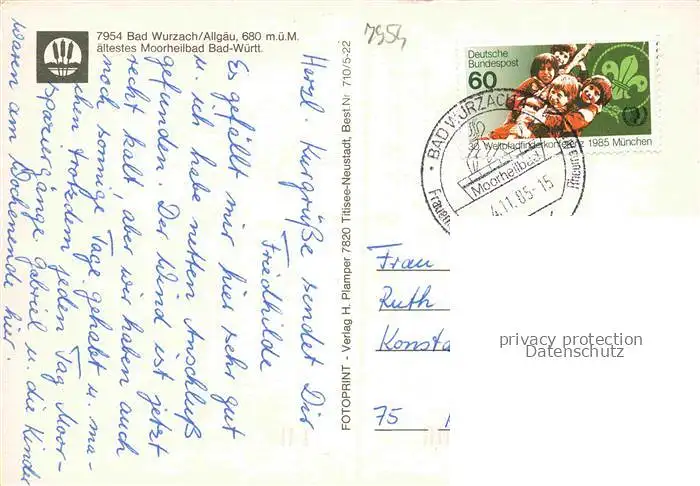 7954 Bad Wurzach/Allgäu, 680 m.ü.M.
ältestes Moorheilbad Bad-Württ.
7954
Herzl. Kurgrüße sendet Dir
Friedhilde
Es gefällt mir hier sehr gut
u. ich habe netten Anschluß
gefunden. Der Wind ist jetzt
recht kalt, aber wir haben auch
noch sonnige Tage gehabt u. ma-
chen trotzdem jeden Tag Moor-
spaziergänge. Gabriel u. die Kinder
waren am Wochenende hier.
FOTOPRINT - Verlag H. Plamper 7820 Titisee-Neustadt, Best.Nr 710/5-22
Deutsche
Bundespost
60
30. Weltpfadfinderkonferenz 1985 München
BAD WURZACH
Moorheilbad
4.11.85-15
Rheuma
Frauen
Frau
Ruth
Konsta
75
privacy protection
Datenschutz